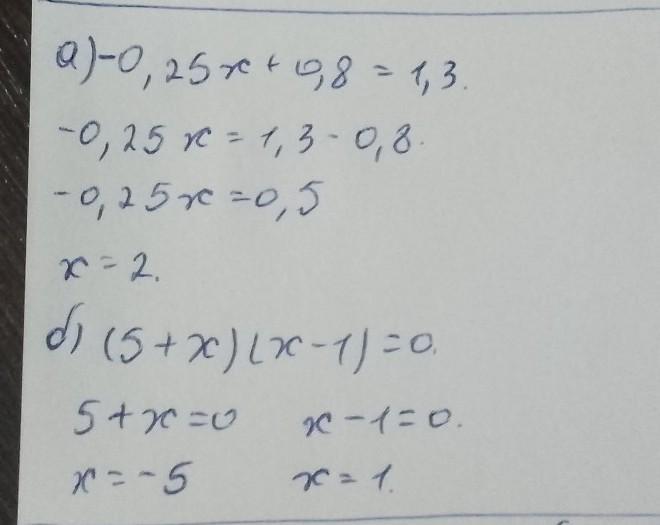 а) -0,25x + 0,8 = 1,3.
-0,25x = 1,3 - 0,8.
-0,25x = 0,5
x = 2.
б) (5+x)(x-1)=0.
5+x=0 x-1=0.
x=-5 x=1.